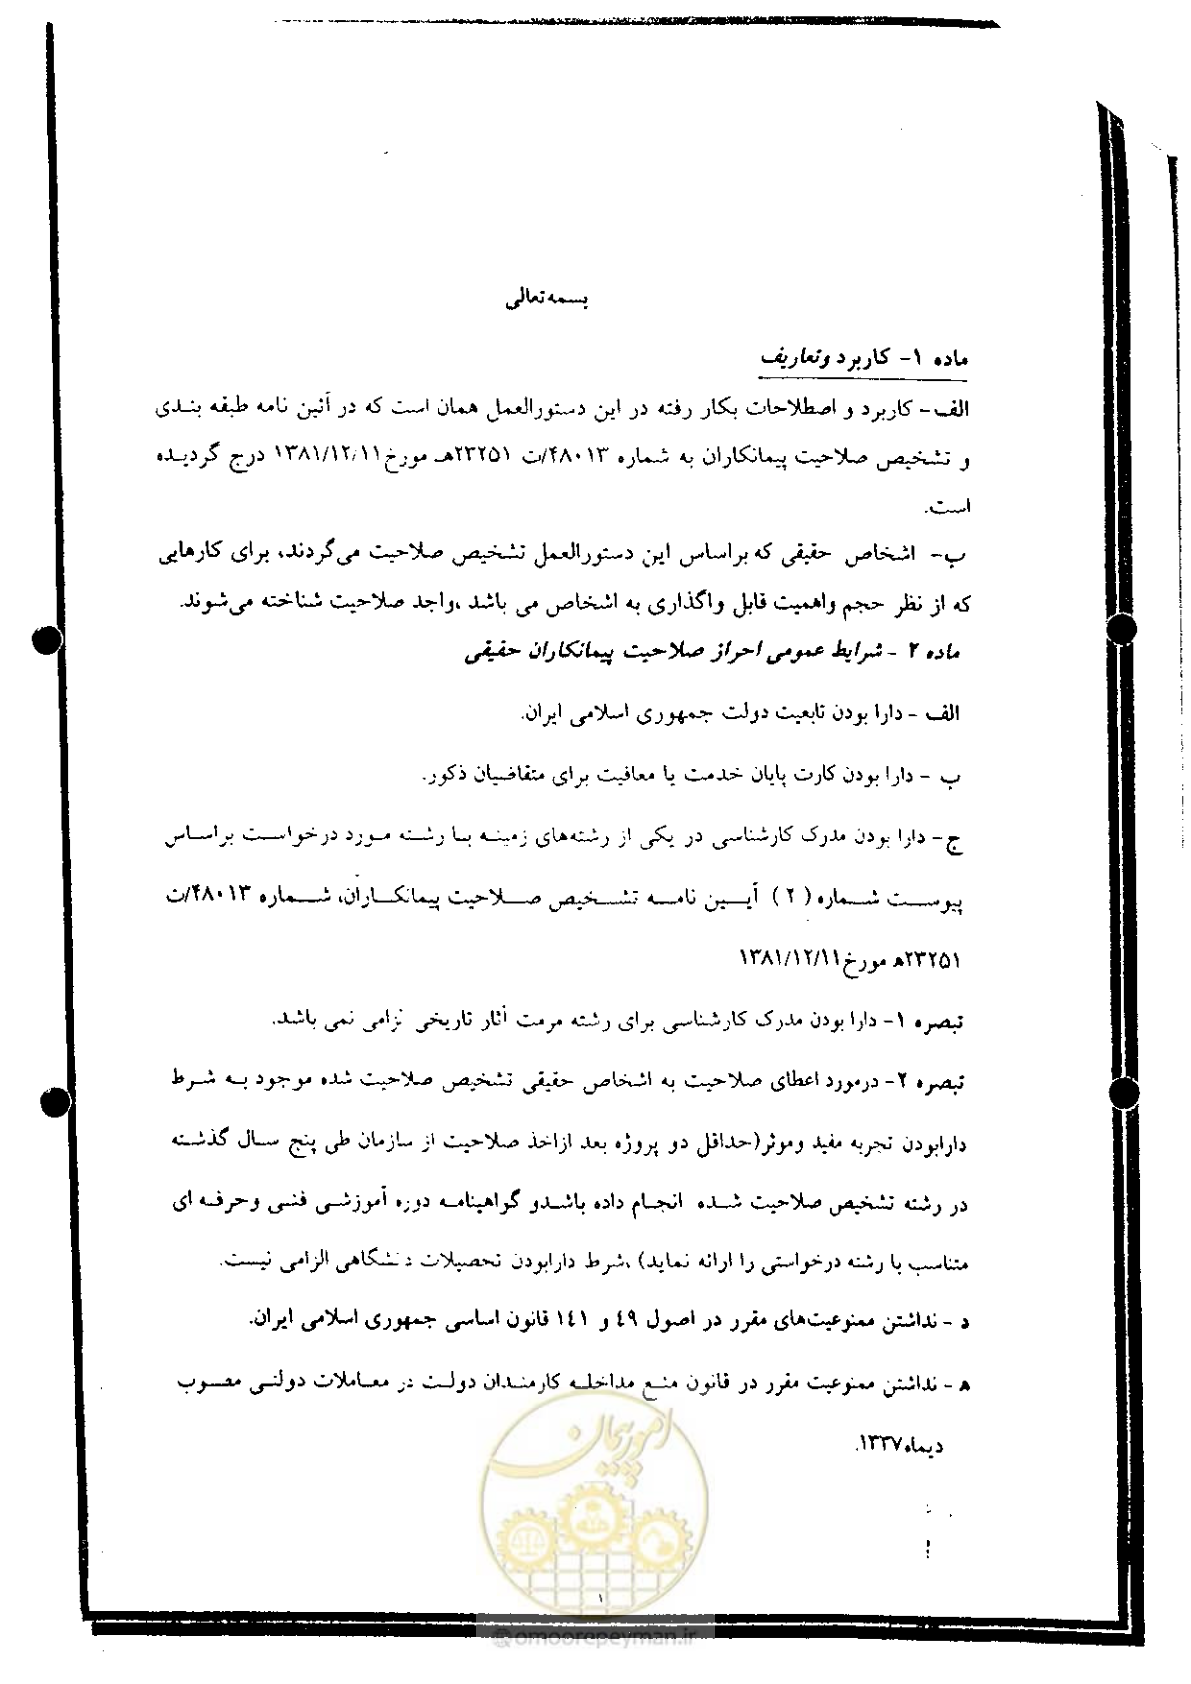 بسمه تعالی
ماده ۱- کاربرد وتعاریف
الف- کاربرد و اصطلاحات بکار رفته در این دستورالعمل همان است که در آئین نامه طبقه بندی
و تشخیص صلاحیت پیمانکاران به شماره ۴۸۰۱۳/ت ۲۳۲۵۱هـ مورخ۱۳۸۱/۱۲/۱۱ درج گردیده
است.
ب- اشخاص حقیقی که براساس این دستورالعمل تشخیص صلاحیت می‌گردند، برای کارهایی
که از نظر حجم واهمیت قابل واگذاری به اشخاص می باشد ،واجد صلاحیت شناخته می‌شوند.
ماده ۲ - شرایط عمومی احراز صلاحیت پیمانکاران حقیقی
الف - دارا بودن تابعیت دولت جمهوری اسلامی ایران.
ب - دارا بودن کارت پایان خدمت یا معافیت برای متقاضیان ذکور.
ج- دارا بودن مدرک کارشناسی در یکی از رشته‌های زمینه با رشته مورد درخواست براساس
پیوست شماره ( ۲ ) آیین نامه تشخیص صلاحیت پیمانکاران، شماره ۴۸۰۱۳/ت
۲۳۲۵۱ه مورخ۱۳۸۱/۱۲/۱۱
تبصره ۱- دارا بودن مدرک کارشناسی برای رشته مرمت آثار تاریخی لزامی نمی باشد.
تبصره ۲- درمورد اعطای صلاحیت به اشخاص حقیقی تشخیص صلاحیت شده موجود به شرط
دارابودن تجربه مفید وموثر(حداقل دو پروژه بعد ازاخذ صلاحیت از سازمان طی پنج سال گذشته
در رشته تشخیص صلاحیت شده انجام داده باشدو گواهینامه دوره آموزشی فنی وحرفه ای
متناسب با رشته درخواستی را ارائه نماید) ،شرط دارابودن تحصیلات دانشگاهی الزامی نیست.
د - نداشتن ممنوعیت‌های مقرر در اصول ٤٩ و ١٤١ قانون اساسی جمهوری اسلامی ایران.
ه - نداشتن ممنوعیت مقرر در قانون منع مداخله کارمندان دولت در معاملات دولتی مصوب
دیماه۱۳۳۷.
امور پیمان
۱
@omoorepeyman.ir